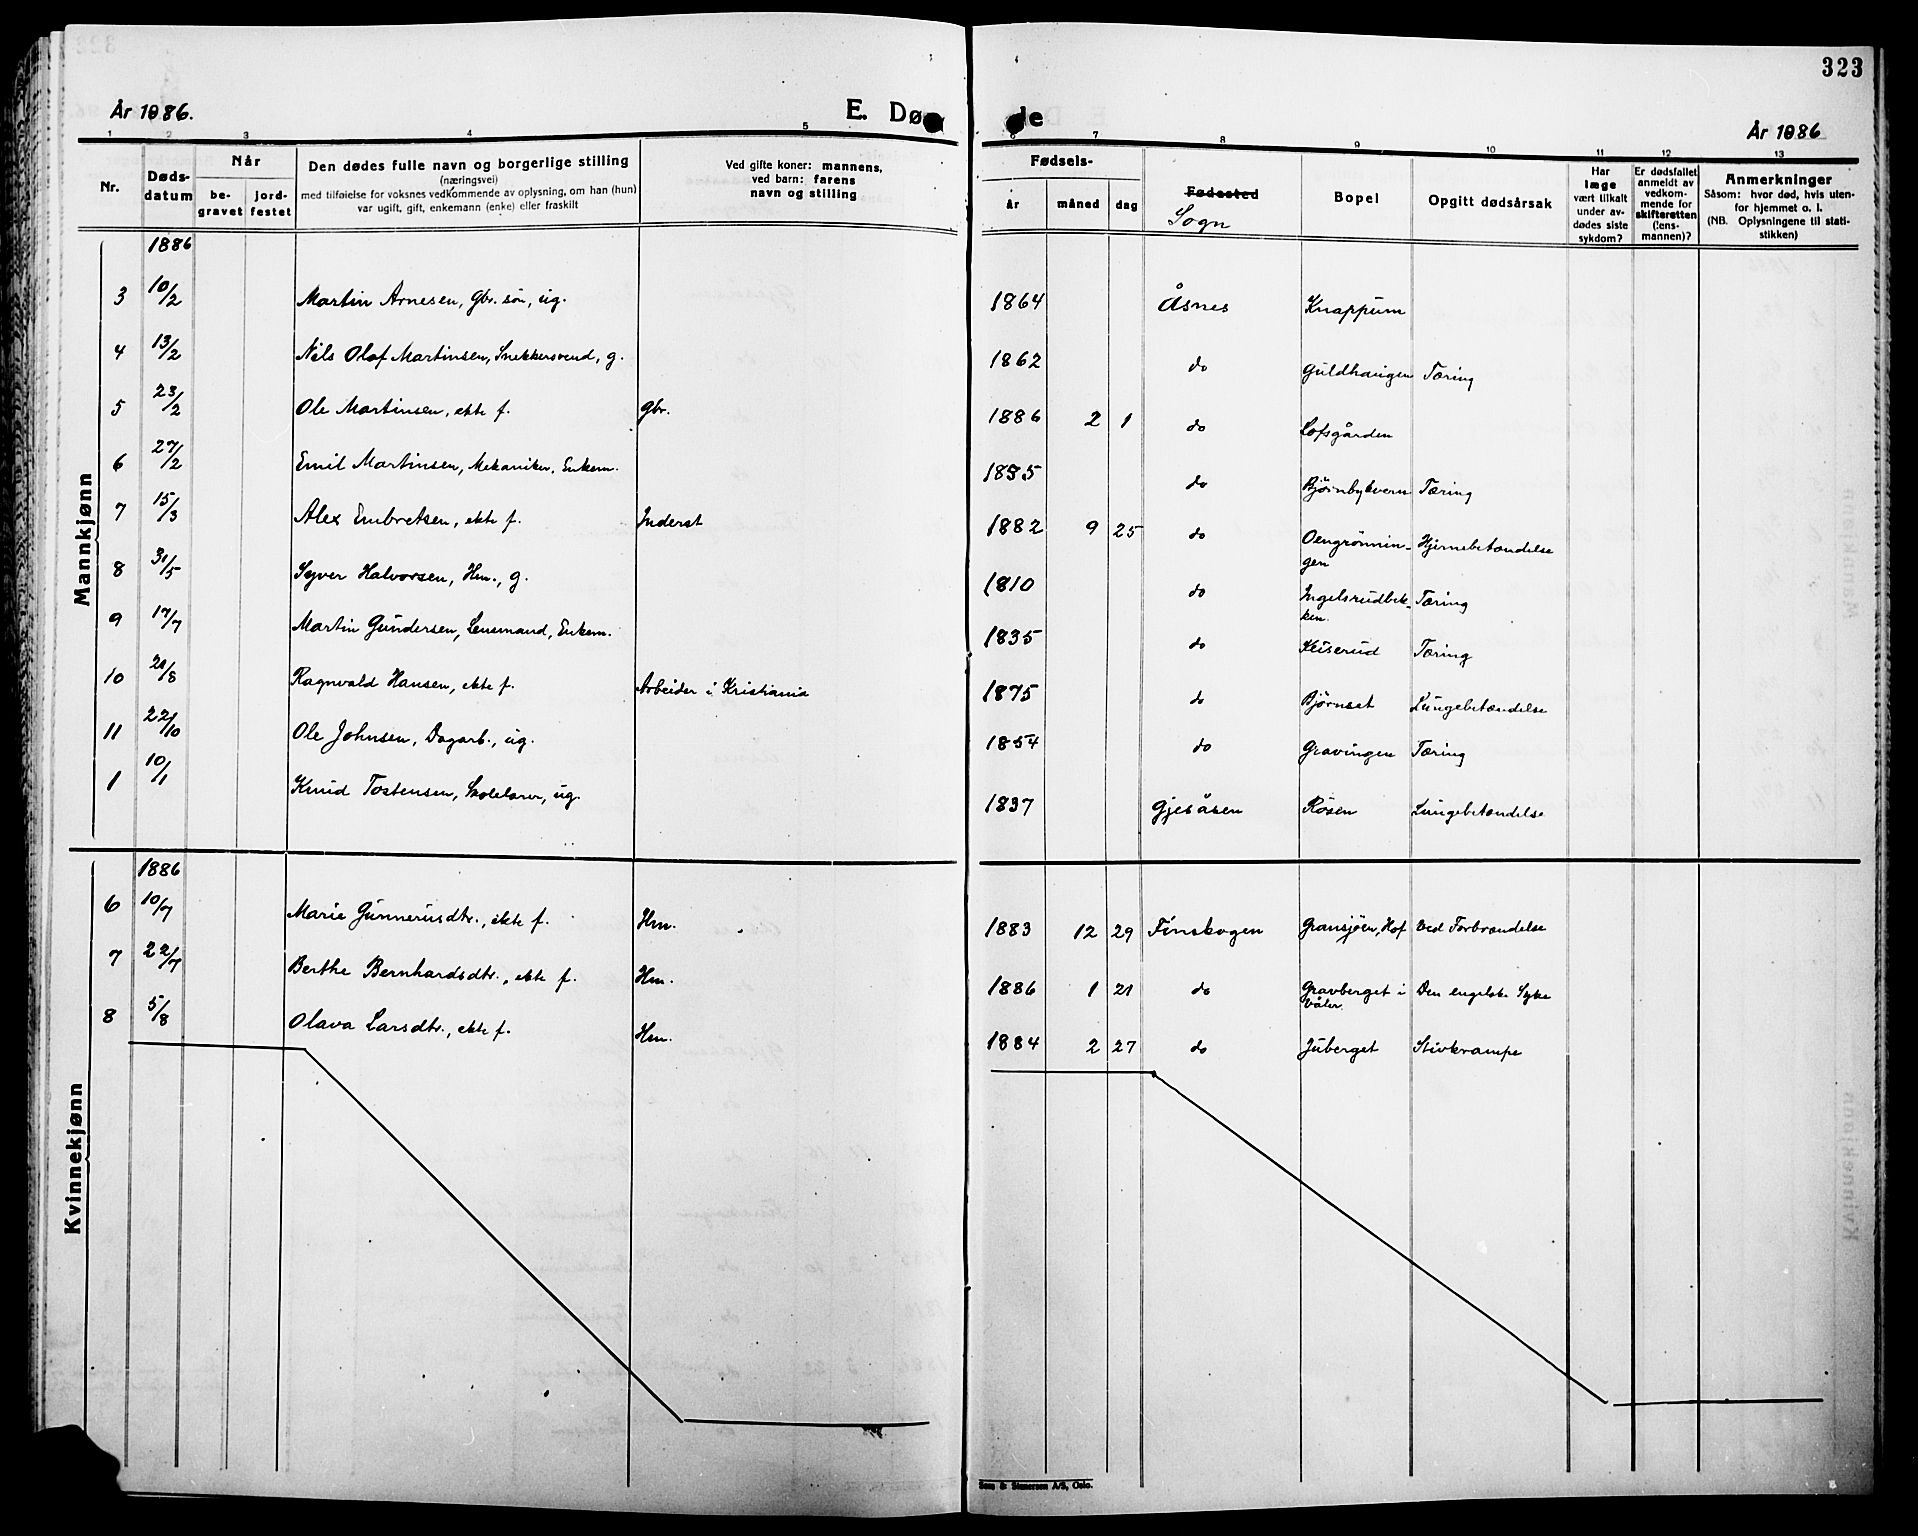 323
År 1886.
E. Dø
de
År 1886
1 2 3 4 5
6 7 8 9 10 11 12 13
Nr.
Døds-
datum
Når
be-
gravet
jord-
festet
Den dødes fulle navn og borgerlige stilling
(næringsvei)
med tilføielse for voksnes vedkommende av oplysning, om han (hun)
var ugift, gift, enkemann (enke) eller fraskilt
Ved gifte koner: mannens,
ved barn: farens
navn og stilling
Fødsels-
år måned dag
Fødested
Sogn
Bopel
Opgitt dødsårsak
Har
læge
vært tilkalt
under av-
dødes siste
sykdom?
Er dødsfallet
anmeldt av
vedkom-
mende for
skifteretten
(lens-
mannen)?
Anmerkninger
Såsom: hvor død, hvis uten-
for hjemmet o. l.
(NB. Oplysningene til stati-
stikken)
Mannkjønn
1886
3 10/2 Martin Arnesen, Gbr. søn, ug. 1864 Åsnes Knappum
4 13/2 Nils Olaf Martinsen, Snekkersvend, g. 1862 do Guldhaugen Tæring
5 23/2 Ole Martinsen, ekte f. Gbr. 1886 2 1 do Lofsgården
6 27/2 Emil Martinsen, Mekaniker, Enkem. 1855 do Bjørnbykvern Tæring
7 15/3 Alex Embretsen, ekte f. Inderst 1882 9 25 do Oengrønnin-
gen Hjernebetændelse
8 31/5 Syver Halvorsen, Hm., g. 1810 do Ingelsrudbek-
ken. Tæring
9 17/7 Martin Gundersen, Lensmand, Enkem. 1835 do Keiserud Tæring
10 21/8 Ragnvald Hansen, ekte f. Arbeider i Kristiania 1875 do Bjørnset Lungebetændelse
11 22/10 Ole Johnsen, Dagarb., ug. 1854 do Gravingen Tæring
1 10/1 Knud Tostensen, Skolelærer, ug. 1837 Gjesåsen Rosen Lungebetændelse
Kvinnekjønn
1886
6 10/7 Marie Gunnerusdtr., ekte f. Hm. 1883 12 29 Finskogen Gransjøen, Hof Ved Forbrændelse
7 22/7 Berthe Bernhardsdtr., ekte f. Hm. 1886 1 21 do Gravberget i
Våler. Den engelske Syke
8 5/8 Olava Larsdtr., ekte f. Hm. 1884 2 27 do Juberget Stivkrampe
Sem & Stenersen A/S, Oslo.